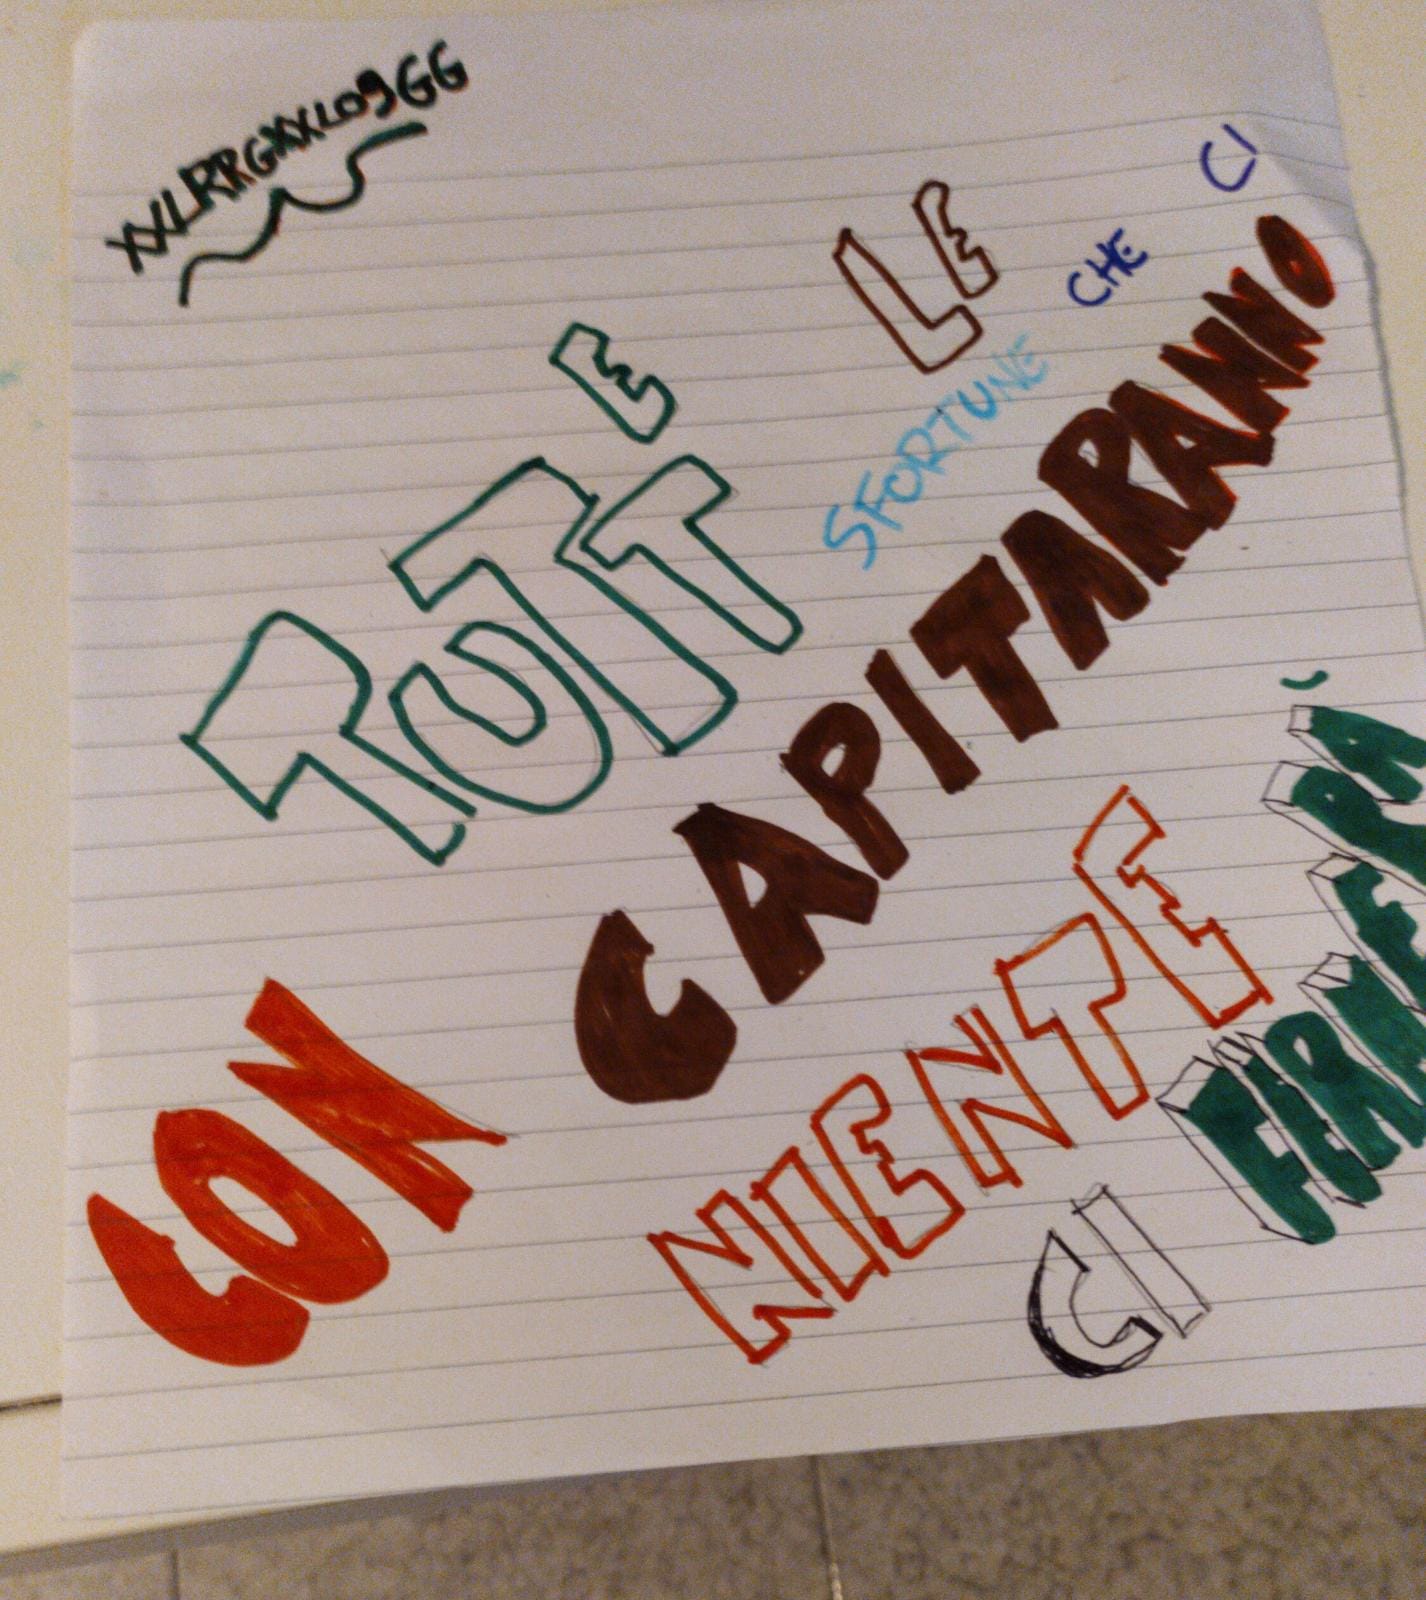 XXLRRGXXLO9GG
CON TUTTE LE
SFORTUNE CHE CI
CAPITARANNO
NIENTE
CI FERMERÀ